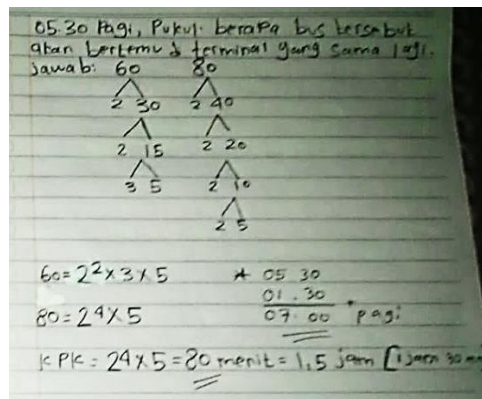 05.30 Pagi, Pukul berapa bus tersebut
akan bertemu d terminal yang sama lagi.
jawab: 60 80
2 30 2 40
2 15 2 20
3 5 2 10
2 5
60 = 2² x 3 x 5
80 = 2⁴ x 5
* 05 30
01.30 +
07.00 pagi
KPK = 2⁴ x 5 = 80 menit = 1,5 jam [1 jam 30